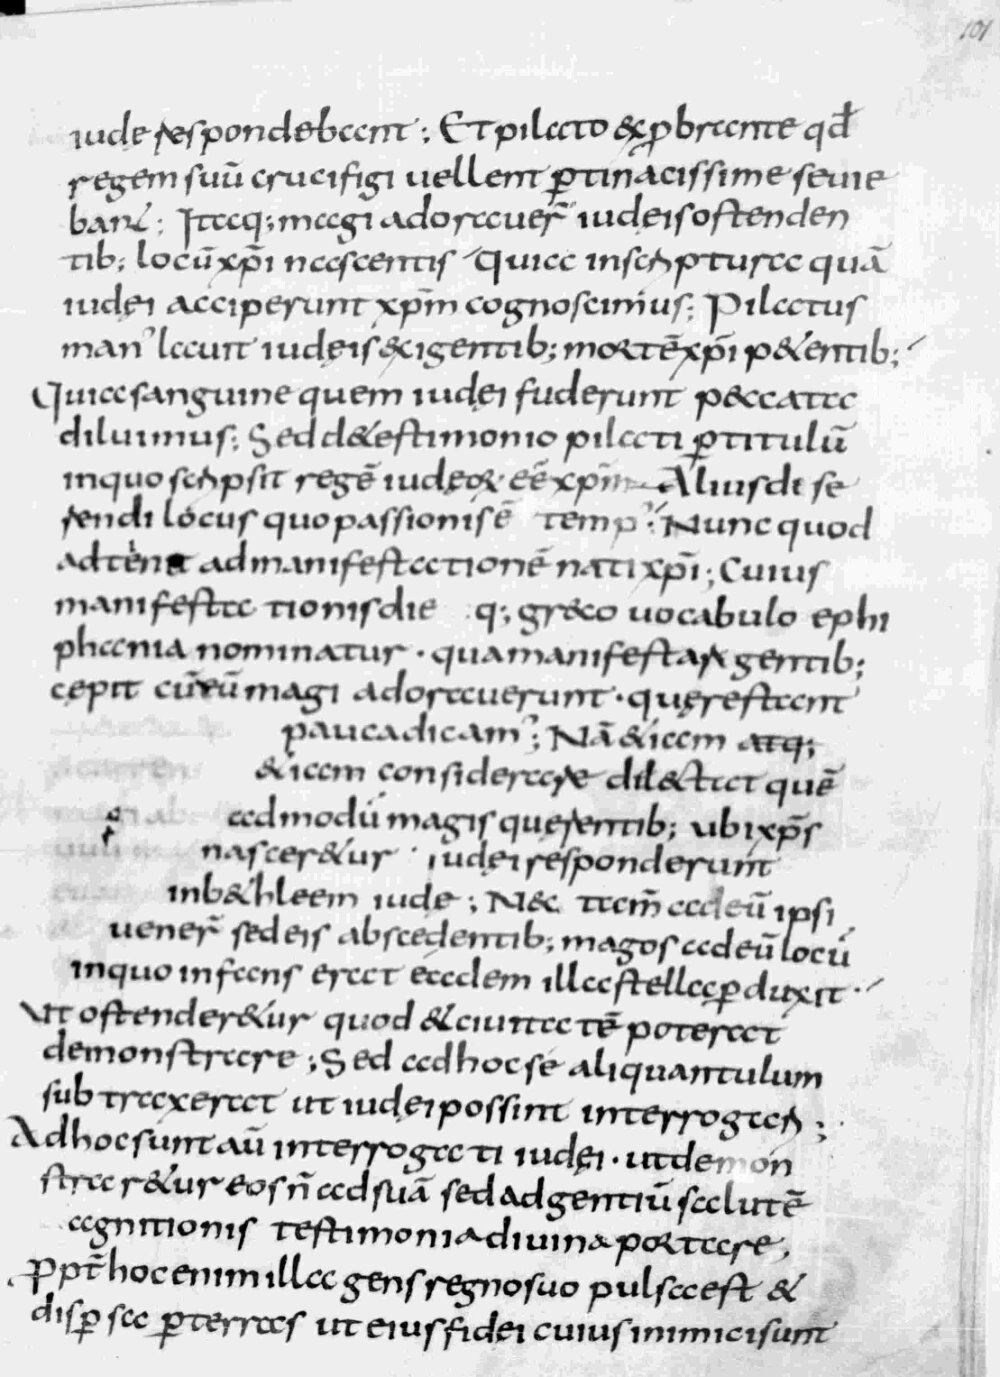 101
iudę respondebant ; Et pilato & ꝓbrante qđ
regem suū crucifigi uellent ꝑtinacissime seuie
bant ; Itaq; magi adorauer̄ iudęis ostenden
tib; locū xp̄i nascentis Quia in scripturа quā
iudęi acciperunt xp̄m cognoscimus ; Pilatus
man' lauit iudęis exigentib; mortē xp̄i p&entib;
Quia sanguine quem iudęi fuderunt peccata
diluimus ; Sed de testimonio pilati ꝑ titulū
in quo scripsit regē iudęoꝝ eē xp̄m Alius disse
rendi locus quo passionis ē temp' ; Nunc quod
ad manifestationē nati xp̄i ; Cuius
manifestationis die q; gręco uocabulo ephi
phania nominatur · qua manifestari gentib;
cępit cū eū magi adorauerunt · quę restant
pauca dicam' ; Nā &iam atq;
&iam considerare dil&tat quē
admodū magis quęrentib; ubi xp̄s
nascer&ur iudęi responderunt
in b&hleem iudę ; Nec tam̄ ad eū ipsi
uener̄ sed eis abscedentib; magos ad eū locū
in quo infans erat eadem illa stella ꝑduxit ·
Vt ostender&ur quod & ciuitatē poterat
demonstrare ; Sed ad hoc se aliquantulum
subtraxerat ut iudęi possint interrogari ;
Ad hoc sunt aū interrogati iudęi · ut demon
strar&ur eos ñ ad suā sed ad gentiū salutē
agnitionis testimonia diuina portare ;
Ꝓpt̄ hoc enim illa gens regno suo pulsa est &
disꝑsa ꝑ terras ut eius fidei cuius inimici sunt